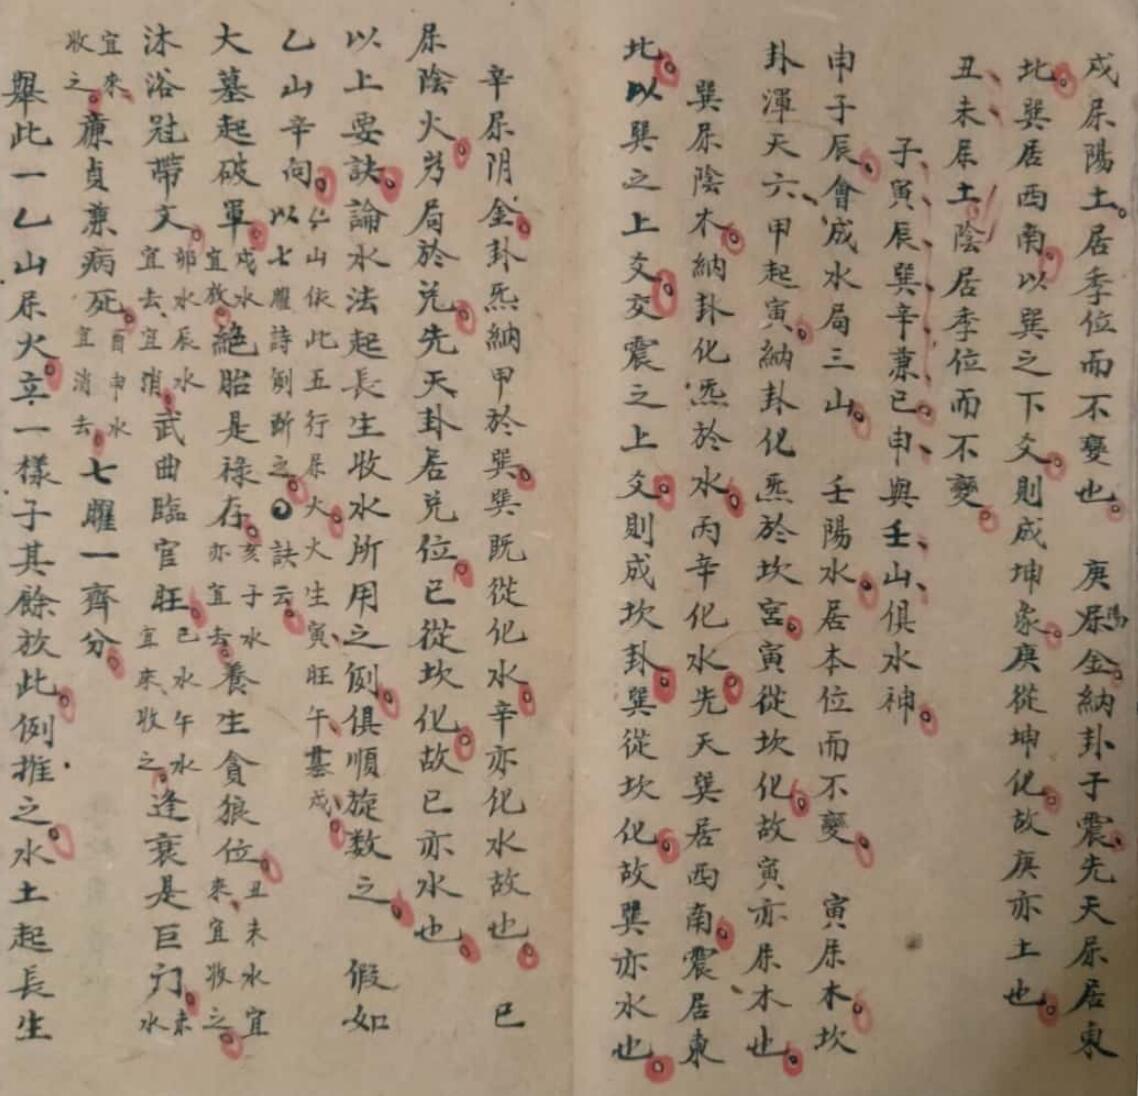 戍屬陽土居季位而不變也 庚屬陽金納卦于震先天屬居東
北巽居西南以巽之下爻則成坤象庚從坤化故庚亦土也
丑未屬土陰居季位而不變
子寅辰巽辛兼巳申與壬山俱水神
申子辰會成水局三山 壬陽水居本位而不變 寅屬木坎
卦渾天六甲起寅納卦化炁於坎宮寅從坎化故寅亦屬木也
巽屬陰木納卦化炁於水丙辛化水先天巽居西南震居東
北以巽之上爻交震之上爻則成坎卦巽從坎化故巽亦水也
辛屬阴金卦炁納甲於巽巽既從化水辛亦化水故也 巳
屬陰火為局於兌先天卦居兌位巳從坎化故巳亦水也
以上要訣論水法起長生收水所用之例俱順旋数之 假如
乙山辛向以七曜詩例断之訣云仁山依此五行屬火火生寅旺午墓戍
大墓起破軍戍水宜放絕胎是祿存亥子水亦宜去養生貪狼位丑未水宜來宜收之
沐浴冠帶文卯水辰水宜去宜消武曲臨官旺巳水午水宜來收之逢衰是巨门未水
宜來收之廉貞兼病死酉申水宜消去七曜一齊分
舉此一乙山屬火立一樣子其餘放此例推之水土起長生